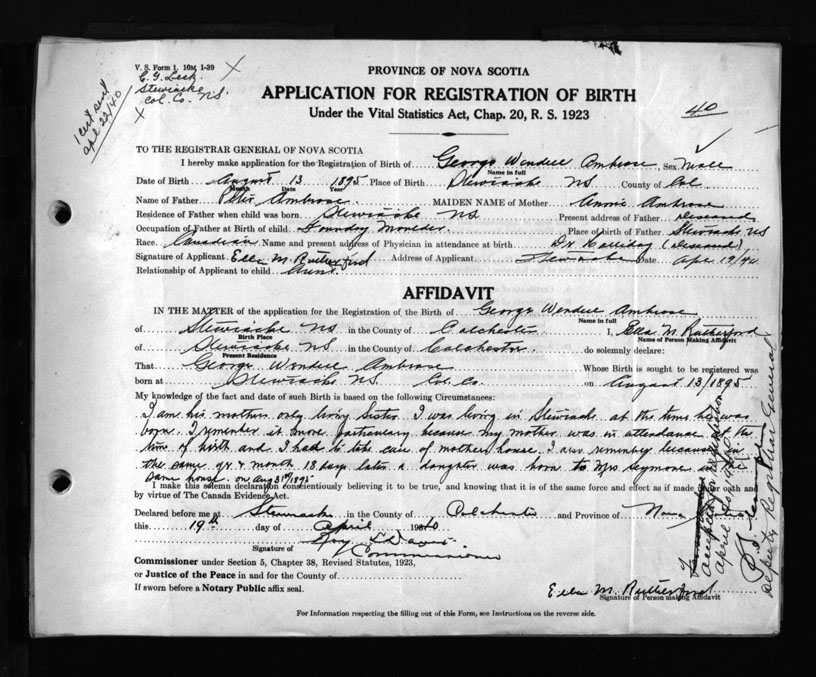 V. S. Form 1. 10M 1-39
Stewiacke
Col. Co. N.S.
1 cert sent
Apl 22/40
PROVINCE OF NOVA SCOTIA
APPLICATION FOR REGISTRATION OF BIRTH
Under the Vital Statistics Act, Chap. 20, R. S. 1923
40
TO THE REGISTRAR GENERAL OF NOVA SCOTIA
I hereby make application for the Registration of Birth of George Wendell Ambrose, Sex Male
Name in full
Date of Birth August 13 1895 Place of Birth Stewiacke NS County of Col
Month Date Year
Name of Father Ambrose MAIDEN NAME of Mother Annie Ambrose
Residence of Father when child was born Stewiacke NS Present address of Father deceased
Occupation of Father at Birth of child Foundry Moulder Place of birth of Father Stewiacke NS
Race. Canadian Name and present address of Physician in attendance at birth Dr Halliday (Deceased)
Signature of Applicant Ella M. Rutherford Address of Applicant Stewiacke Date Apl 19/40
Relationship of Applicant to child Aunt
AFFIDAVIT
IN THE MATTER of the application for the Registration of the Birth of George Wendell Ambrose
Name in full
of Stewiacke NS in the County of Colchester I, Ella M. Rutherford
Birth Place Name of Person Making Affidavit
of Stewiacke NS in the County of Colchester do solemnly declare:
Present Residence
That George Wendell Ambrose Whose Birth is sought to be registered was
born at Stewiacke NS. Col. Co. on August 13/1895
My knowledge of the fact and date of such Birth is based on the following Circumstances:
I am his mothers only living Sister. I was living in Stewiacke at the time he was
born. I remember it more particulary because my mother was in attendance at the
time of birth and I had to take care of mothers house. I also remember because in
the same yr & month 18 days later a daughter was born to Mrs Seymore in the
Same house. on Aug 31st/1895
I make this solemn declaration conscientiously believing it to be true, and knowing that it is of the same force and effect as if made under oath and
by virtue of The Canada Evidence Act.
Declared before me at Stewiacke in the County of Colchester and Province of Nova Scotia
this 19th day of April 1940
Signature of Davis
Commissioner
Commissioner under Section 5, Chapter 38, Revised Statutes, 1923,
or Justice of the Peace in and for the County of
If sworn before a Notary Public affix seal.
Ella M. Rutherford
Signature of Person making Affidavit
For Information respecting the filling out of this Form, see Instructions on the reverse side.
accepted for registration
April 20
Deputy Registrar General